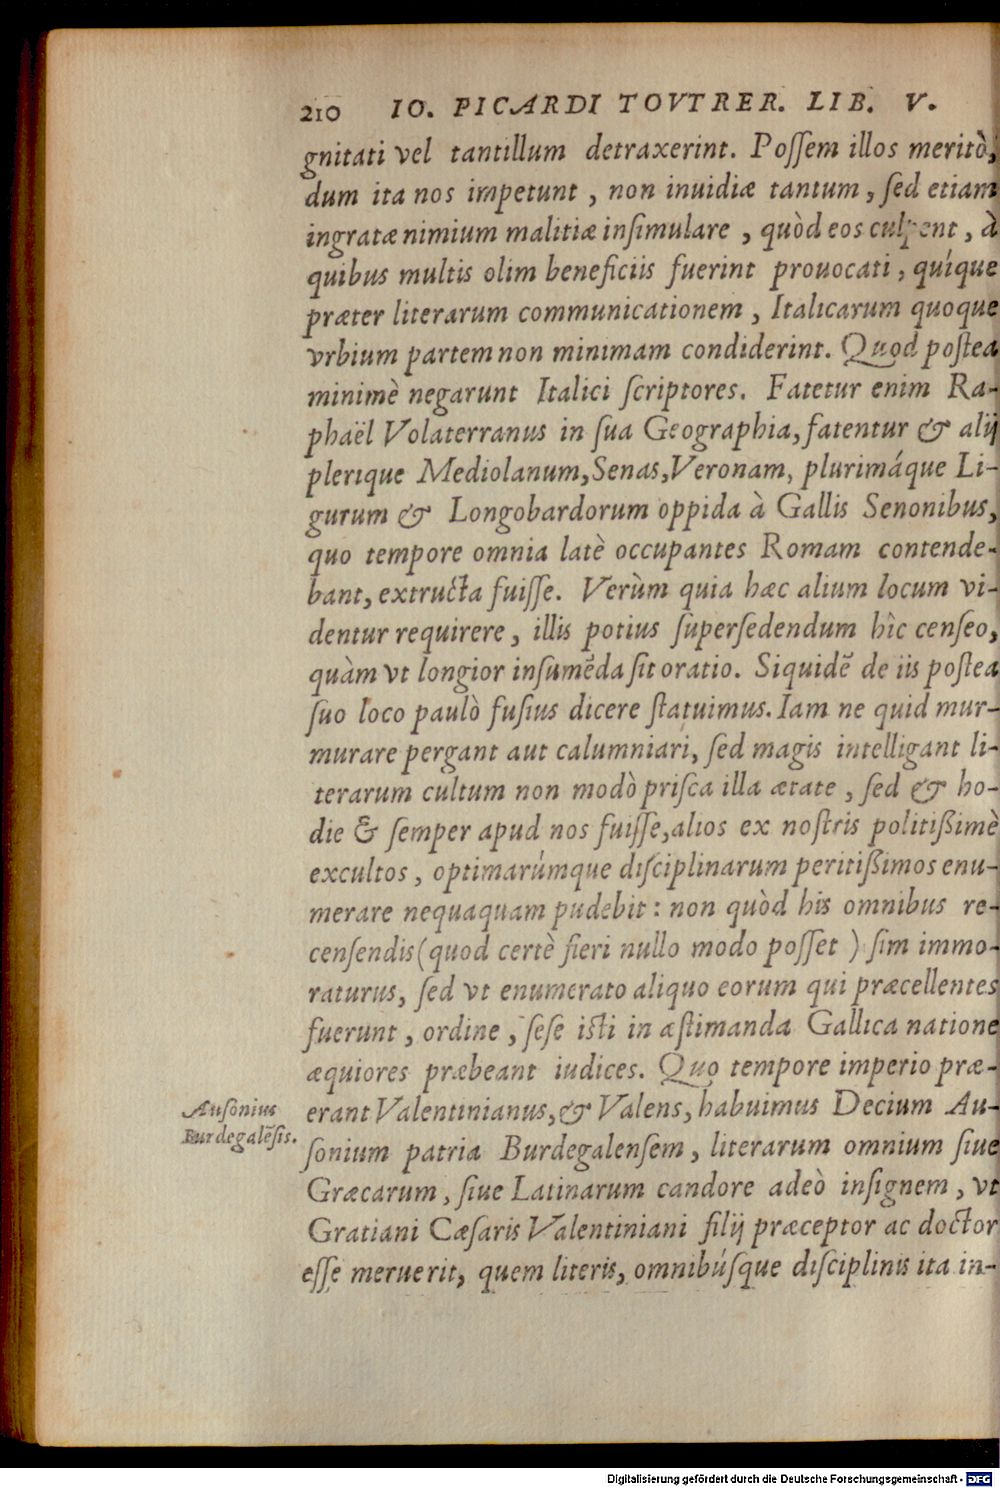 210 IO. PICARDI TOVTRER. LIB. V.
gnitati vel tantillum detraxerint. Poſſem illos meritò,
dum ita nos impetunt, non inuidiæ tantum, ſed etiam
ingratæ nimium malitiæ inſimulare, quòd eos culpent, à
quibus multis olim beneficiis fuerint prouocati, quíque
præter literarum communicationem, Italicarum quoque
vrbium partem non minimam condiderint. Quod poſtea
minimè negarunt Italici ſcriptores. Fatetur enim Ra-
phaël Volaterranus in ſua Geographia, fatentur & alij
plerique Mediolanum, Senas, Veronam, plurimáque Li-
gurum & Longobardorum oppida à Gallis Senonibus,
quo tempore omnia latè occupantes Romam contende-
bant, extructa fuiſſe. Verùm quia hæc alium locum vi-
dentur requirere, illis potius ſuperſedendum hîc cenſeo,
quàm vt longior inſumẽda ſit oratio. Siquidẽ de iis poſtea
ſuo loco paulò fuſius dicere ſtatuimus. Iam ne quid mur-
murare pergant aut calumniari, ſed magis intelligant li-
terarum cultum non modò priſca illa ætate, ſed & ho-
die & ſemper apud nos fuiſſe, alios ex noſtris politißimè
excultos, optimarúmque diſciplinarum peritißimos enu-
merare nequaquam pudebit: non quòd his omnibus re-
cenſendis (quod certè fieri nullo modo poſſet) ſim immo-
raturus, ſed vt enumerato aliquo eorum qui præcellentes
fuerunt, ordine, ſeſe iſti in æſtimanda Gallica natione
æquiores præbeant iudices. Quo tempore imperio præ-
erant Valentinianus, & Valens, habuimus Decium Au-
Auſonius
Burdegalẽſis.
ſonium patria Burdegalenſem, literarum omnium ſiue
Græcarum, ſiue Latinarum candore adeò inſignem, vt
Gratiani Cæſaris Valentiniani filij præceptor ac doctor
eſſe meruerit, quem literis, omnibúſque diſciplinis ita in-
Digitalisierung gefördert durch die Deutsche Forschungsgemeinschaft - DFG